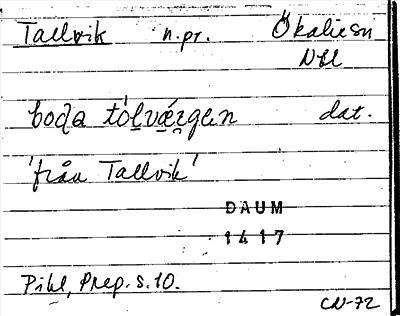 Tallvik n.pr. Ökaliesn
Nbl
boḍa tóḷvárgen dat.
'från Tallvik'
DAUM
1417
Pihl, Prep. s. 10.
CN-72